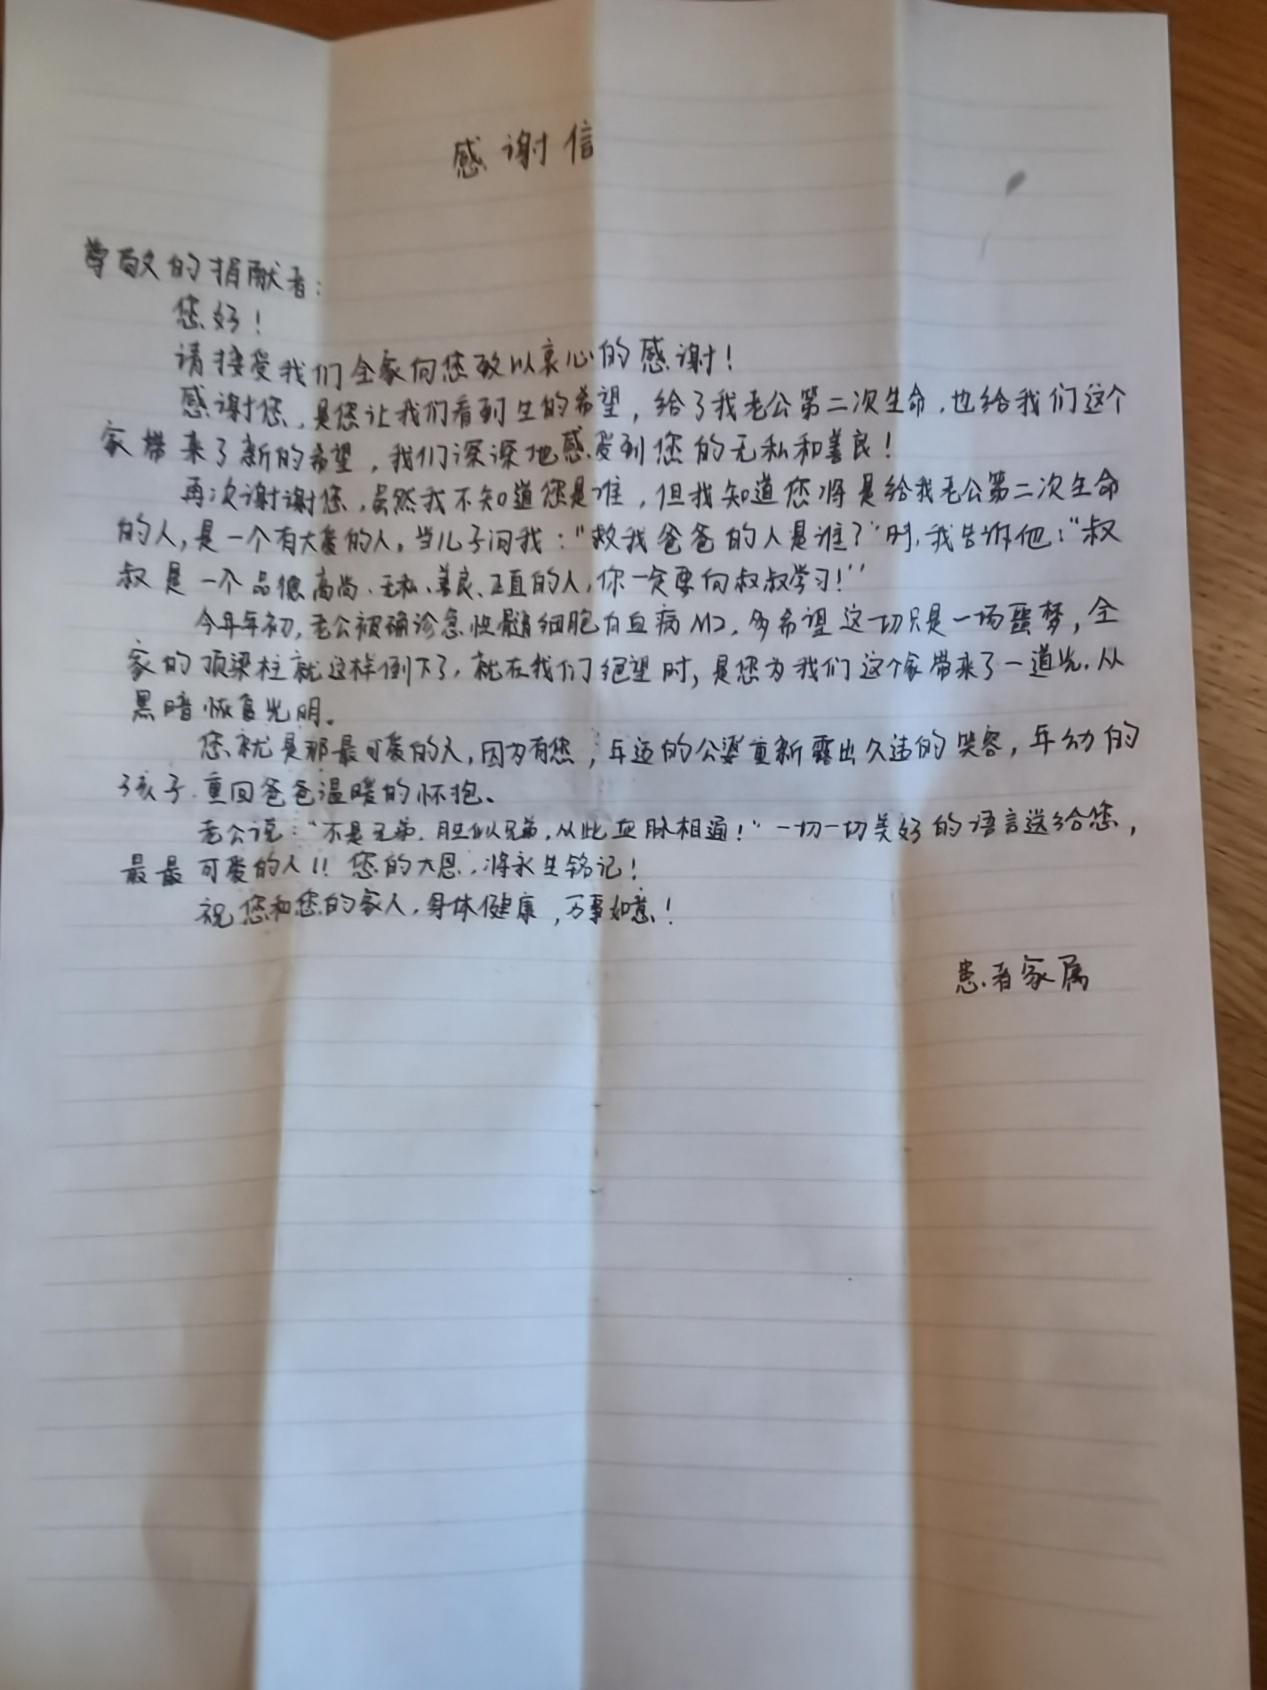 感谢信
尊敬的捐献者：
您好！
请接受我们全家向您致以衷心的感谢！
感谢您，是您让我们看到生的希望，给了我老公第二次生命，也给我们这个
家带来了新的希望，我们深深地感受到您的无私和善良！
再次谢谢您，虽然我不知道您是谁，但我知道您将是给我老公第二次生命
的人，是一个有大爱的人，当儿子问我：“救我爸爸的人是谁？”时，我告诉他：“叔
叔是一个品德高尚、无私、善良、正直的人，你一定要向叔叔学习！”
今年年初，老公被确诊急性髓细胞白血病M2，多希望这一切只是一场噩梦，全
家的顶梁柱就这样倒下了，就在我们绝望时，是您为我们这个家带来了一道光，从
黑暗恢复光明。
您就是那最可爱的人，因为有您，年迈的公婆重新露出久违的笑容，年幼的
孩子重回爸爸温暖的怀抱。
老公说：“不是兄弟，胜似兄弟，从此血脉相通！”一切一切美好的语言送给您，
最最可爱的人！！您的大恩，将永生铭记！
祝您和您的家人，身体健康，万事如意！
患者家属